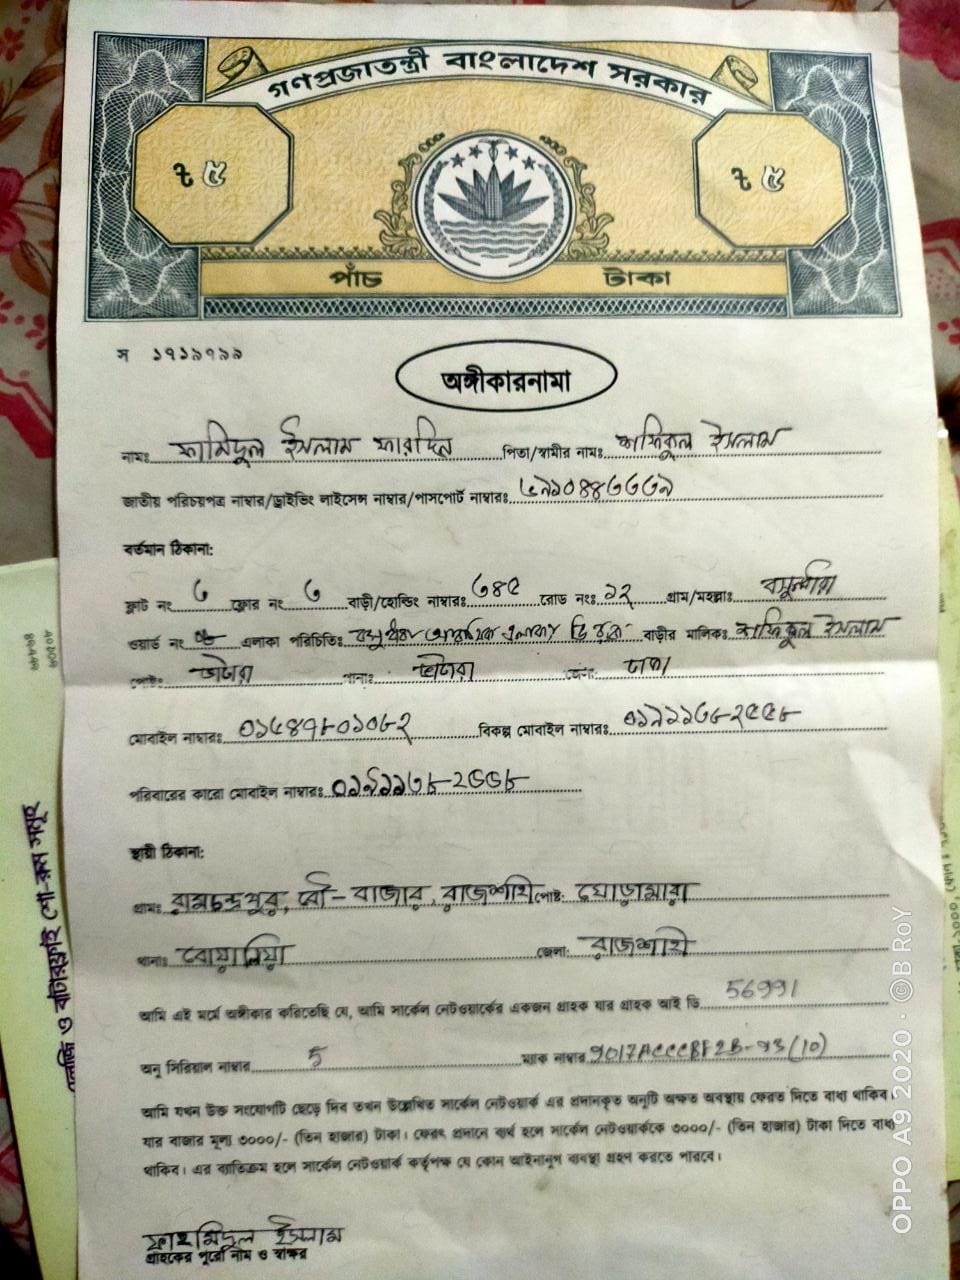 গণপ্রজাতন্ত্রী বাংলাদেশ সরকার
৳ ৫ ৳ ৫
পাঁচ টাকা
স ১৭১৯৭৯৯
অঙ্গীকারনামা
নামঃ ফামিদুল ইসলাম ফারদিন পিতা/স্বামীর নামঃ শফিকুল ইসলাম
জাতীয় পরিচয়পত্র নাম্বার/ড্রাইভিং লাইসেন্স নাম্বার/পাসপোর্ট নাম্বারঃ
বর্তমান ঠিকানা:
ফ্লাট নং ৩ ফ্লোর নং ৩ বাড়ী/হোল্ডিং নাম্বারঃ ৩৪৫ রোড নংঃ ১২ গ্রাম/মহল্লাঃ বসুন্ধরা
ওয়ার্ড নং এলাকা পরিচিতিঃ বসুন্ধরা আবাসিক এলাকা ডি ব্লক বাড়ীর মালিকঃ শফিকুল ইসলাম
পোষ্টঃ ভাটারা থানাঃ ভাটারা জেলাঃ ঢাকা
মোবাইল নাম্বারঃ বিকল্প মোবাইল নাম্বারঃ
পরিবারের কারো মোবাইল নাম্বারঃ
স্থায়ী ঠিকানা:
গ্রামঃ রামচন্দ্রপুর, বৌ-বাজার, রাজশাহি পোষ্ট: ঘোড়ামারা
থানাঃ বোয়ালিয়া জেলা: রাজশাহি
আমি এই মর্মে অঙ্গীকার করিতেছি যে, আমি সার্কেল নেটওয়ার্কের একজন গ্রাহক যার গ্রাহক আই ডি 56991
অনু সিরিয়াল নাম্বার 5 ম্যাক নাম্বার
আমি যখন উক্ত সংযোগটি ছেড়ে দিব তখন উল্লেখিত সার্কেল নেটওয়ার্ক এর প্রদানকৃত অনুটি অক্ষত অবস্থায় ফেরত দিতে বাধ্য থাকিব।
যার বাজার মূল্য ৩০০০/- (তিন হাজার) টাকা। ফেরৎ প্রদানে ব্যর্থ হলে সার্কেল নেটওয়ার্ককে ৩০০০/- (তিন হাজার) টাকা দিতে বাধ্য
থাকিব। এর ব্যতিক্রম হলে সার্কেল নেটওয়ার্ক কর্তৃপক্ষ যে কোন আইনানুগ ব্যবস্থা গ্রহন করতে পারবে।
ফাহমিদুল ইসলাম
গ্রাহকের পুরো নাম ও স্বাক্ষর
OPPO A9 2020 · ©B RoY